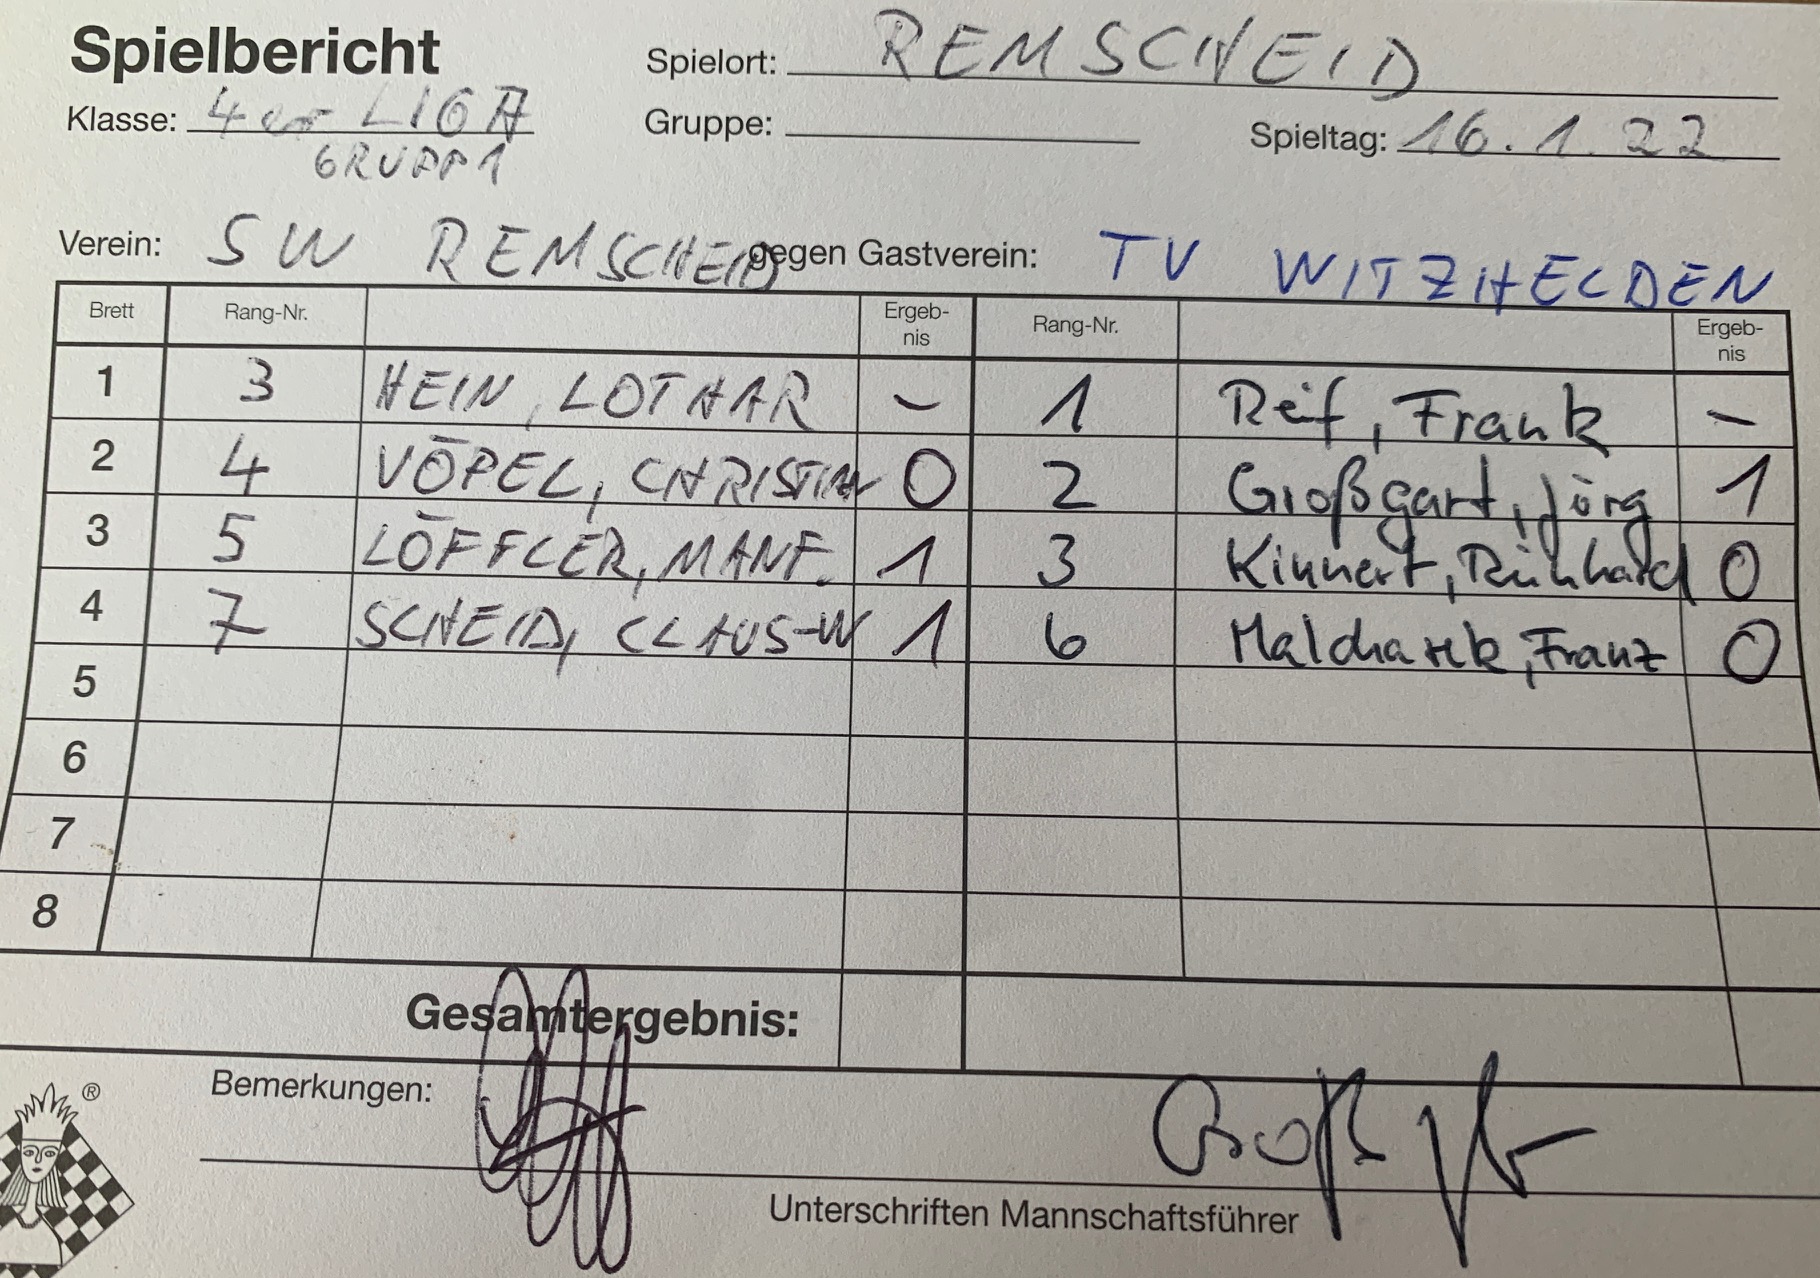 Spielbericht Spielort: REMSCHEID
Klasse: 4er LIGA Gruppe: Spieltag: 16.1.22
GRUPP 1
Verein: SW REMSCHEID gegen Gastverein: TV WITZHELDEN
Brett Rang-Nr. Ergeb-nis Rang-Nr. Ergeb-nis
1 3 HEIN, LOTHAR - 1 Reif, Frank -
2 4 VÖPEL, CHRISTIAN 0 2 Großgart, Jörg 1
3 5 LÖFFLER, MANF. 1 3 Kinnert, Reinhard 0
4 7 SCHEID, CLAUS-W 1 6 Malcharek, Franz 0
5
6
7
8
Gesamtergebnis:
®
Bemerkungen:
Unterschriften Mannschaftsführer